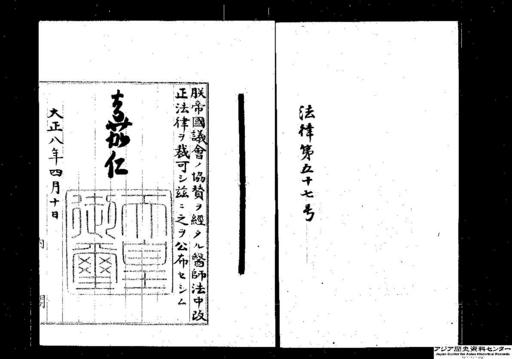 法律第五十七号
朕帝國議會ノ協賛ヲ經タル醫師法中改
正法律ヲ裁可シ茲ニ之ヲ公布セシム
嘉仁
天皇
御璽
大正八年四月十日
内閣
アジア歴史資料センター
Japan Center for Asian Historical Records